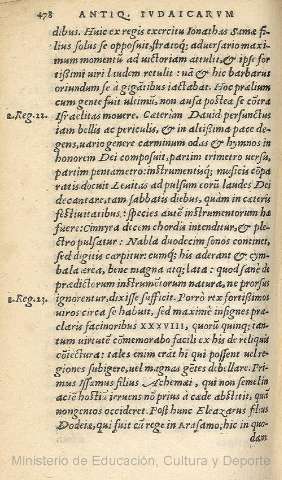 478 ANTIQ. IVDAICARVM
dibus. Huic ex regis exercitu Ionathas Samæ fi-
lius solus se opposuit, stratoq; aduersario maxi-
mum momentũ ad uictoriam attulit, & ipse for-
tißimi uiri laudem retulit: nã & hic barbarus
oriundum se à gigãtibus iactabat. Hoc præliũm
cum gente fuit ultimũ, non ausa posteà se cõtra
2.Reg.22. Israelitas mouere. Cæterùm Dauid perfunctus
iam bellis ac periculis, & in altißima pace de-
gens, uario genere carminum odas & hymnos in
honorem Dei composuit, partim trimetro uersu,
partim pentametro: instrumentisq; musicis cõpa
ratis docuit Leuitas ad pulsum eorũ laudes Dei
decantare, tam sabbatis diebus, quàm in cæteris
festiuitatibus: species autẽ instrumentorum hæ
fuere: Cinnyra decem chordis intenditur, & ple-
ctro pulsatur: Nabla duodecim sonos continet,
sed digitis carpitur: eumq; his aderant & cym-
bala ærea, bene magna atq; lata: quod sanè de
prædictorum instrumẽtorum natura, ne prorsus
2.Reg.23. ignorentur, dixisse sufficit. Porrò rex fortißimos
uiros circa se habuit, sed maximè insignes præ-
claris facinoribus XXXVIII, quorũ quinq; tan-
tum uirtutẽ cõmemorabo facili ex his de reliquis
cõiectura: tales enim erãt hi qui possent uel re-
giones subigere, uel magnas gẽtes debellare. Pri-
mus Issamus filius Achemai, qui non semel in
aciẽ hostiũ irruens nõ prius à cæde abstitit, quã
nongentos occideret. Post hunc Eleazarus filius
Dodeiæ, qui fuit cũ rege in Arasamo, hic in quo-
dam
Ministerio de Educación, Cultura y Deporte